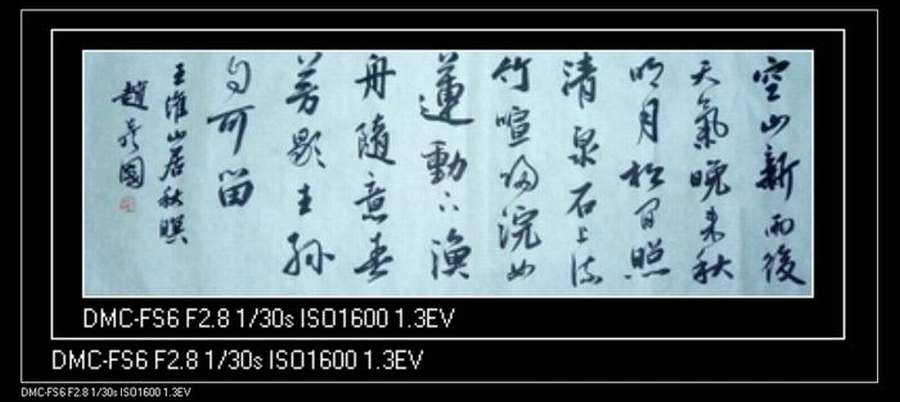 空山新雨後
天氣晚来秋
明月松间照
清泉石上流
竹喧归浣女
蓮動下漁
舟隨意春
芳歇王孫
自可留
王維山居秋暝
趙國
DMC-FS6 F2.8 1/30s ISO1600 1.3EV
DMC-FS6 F2.8 1/30s ISO1600 1.3EV
DMC-FS6 F2.8 1/30s ISO1600 1.3EV